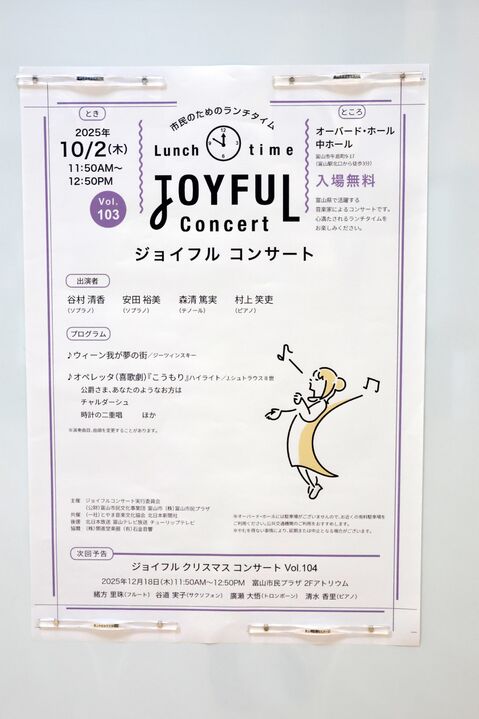 とき
2025年
10/2(木)
11:50AM〜
12:50PM
Vol.
103
市民のためのランチタイム
12
Lunch time
JOYFUL
Concert
ジョイフル コンサート
ところ
オーバード・ホール
中ホール
富山市牛島町9-17
(富山駅北口から徒歩3分)
入場無料
富山県で活躍する
音楽家によるコンサートです。
心満たされるランチタイムを
お楽しみください。
出演者
谷村 清香 安田 裕美 森清 篤実 村上 笑吏
(ソプラノ) (ソプラノ) (テノール) (ピアノ)
プログラム
♪ウィーン我が夢の街/ジーツィンスキー
♪オペレッタ(喜歌劇)『こうもり』ハイライト/J.シュトラウスⅡ世
公爵さま、あなたのようなお方は
チャルダーシュ
時計の二重唱 ほか
※演奏曲目、曲順を変更することがあります。
主催 ジョイフルコンサート実行委員会
(公財)富山市民文化事業団 富山市 (株)富山市民プラザ
共催 (一社)とやま音楽文化協会 北日本新聞社
後援 北日本放送 富山テレビ放送 チューリップテレビ
協賛 (株)開進堂楽器 (有)石金音響
※オーバード・ホールには駐車場がございませんので、お近くの有料駐車場を
ご利用ください。公共交通機関のご利用をおすすめします。
※やむを得ない事情により、延期または中止となる場合がございます。
次回予告
ジョイフル クリスマス コンサート Vol.104
2025年12月18日(木)11:50AM〜12:50PM 富山市民プラザ 2Fアトリウム
緒方 里珠(フルート) 谷道 実子(サクソフォン) 廣瀬 大悟(トロンボーン) 清水 香里(ピアノ)